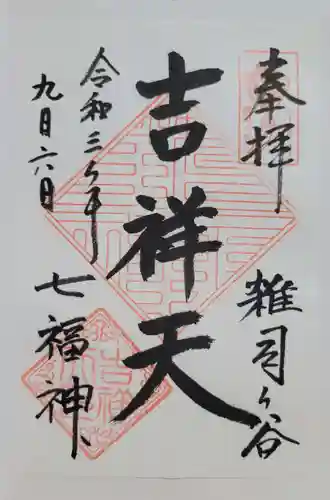 奉拝
雑司ヶ谷
吉祥天
令和三年
九月六日
七福神